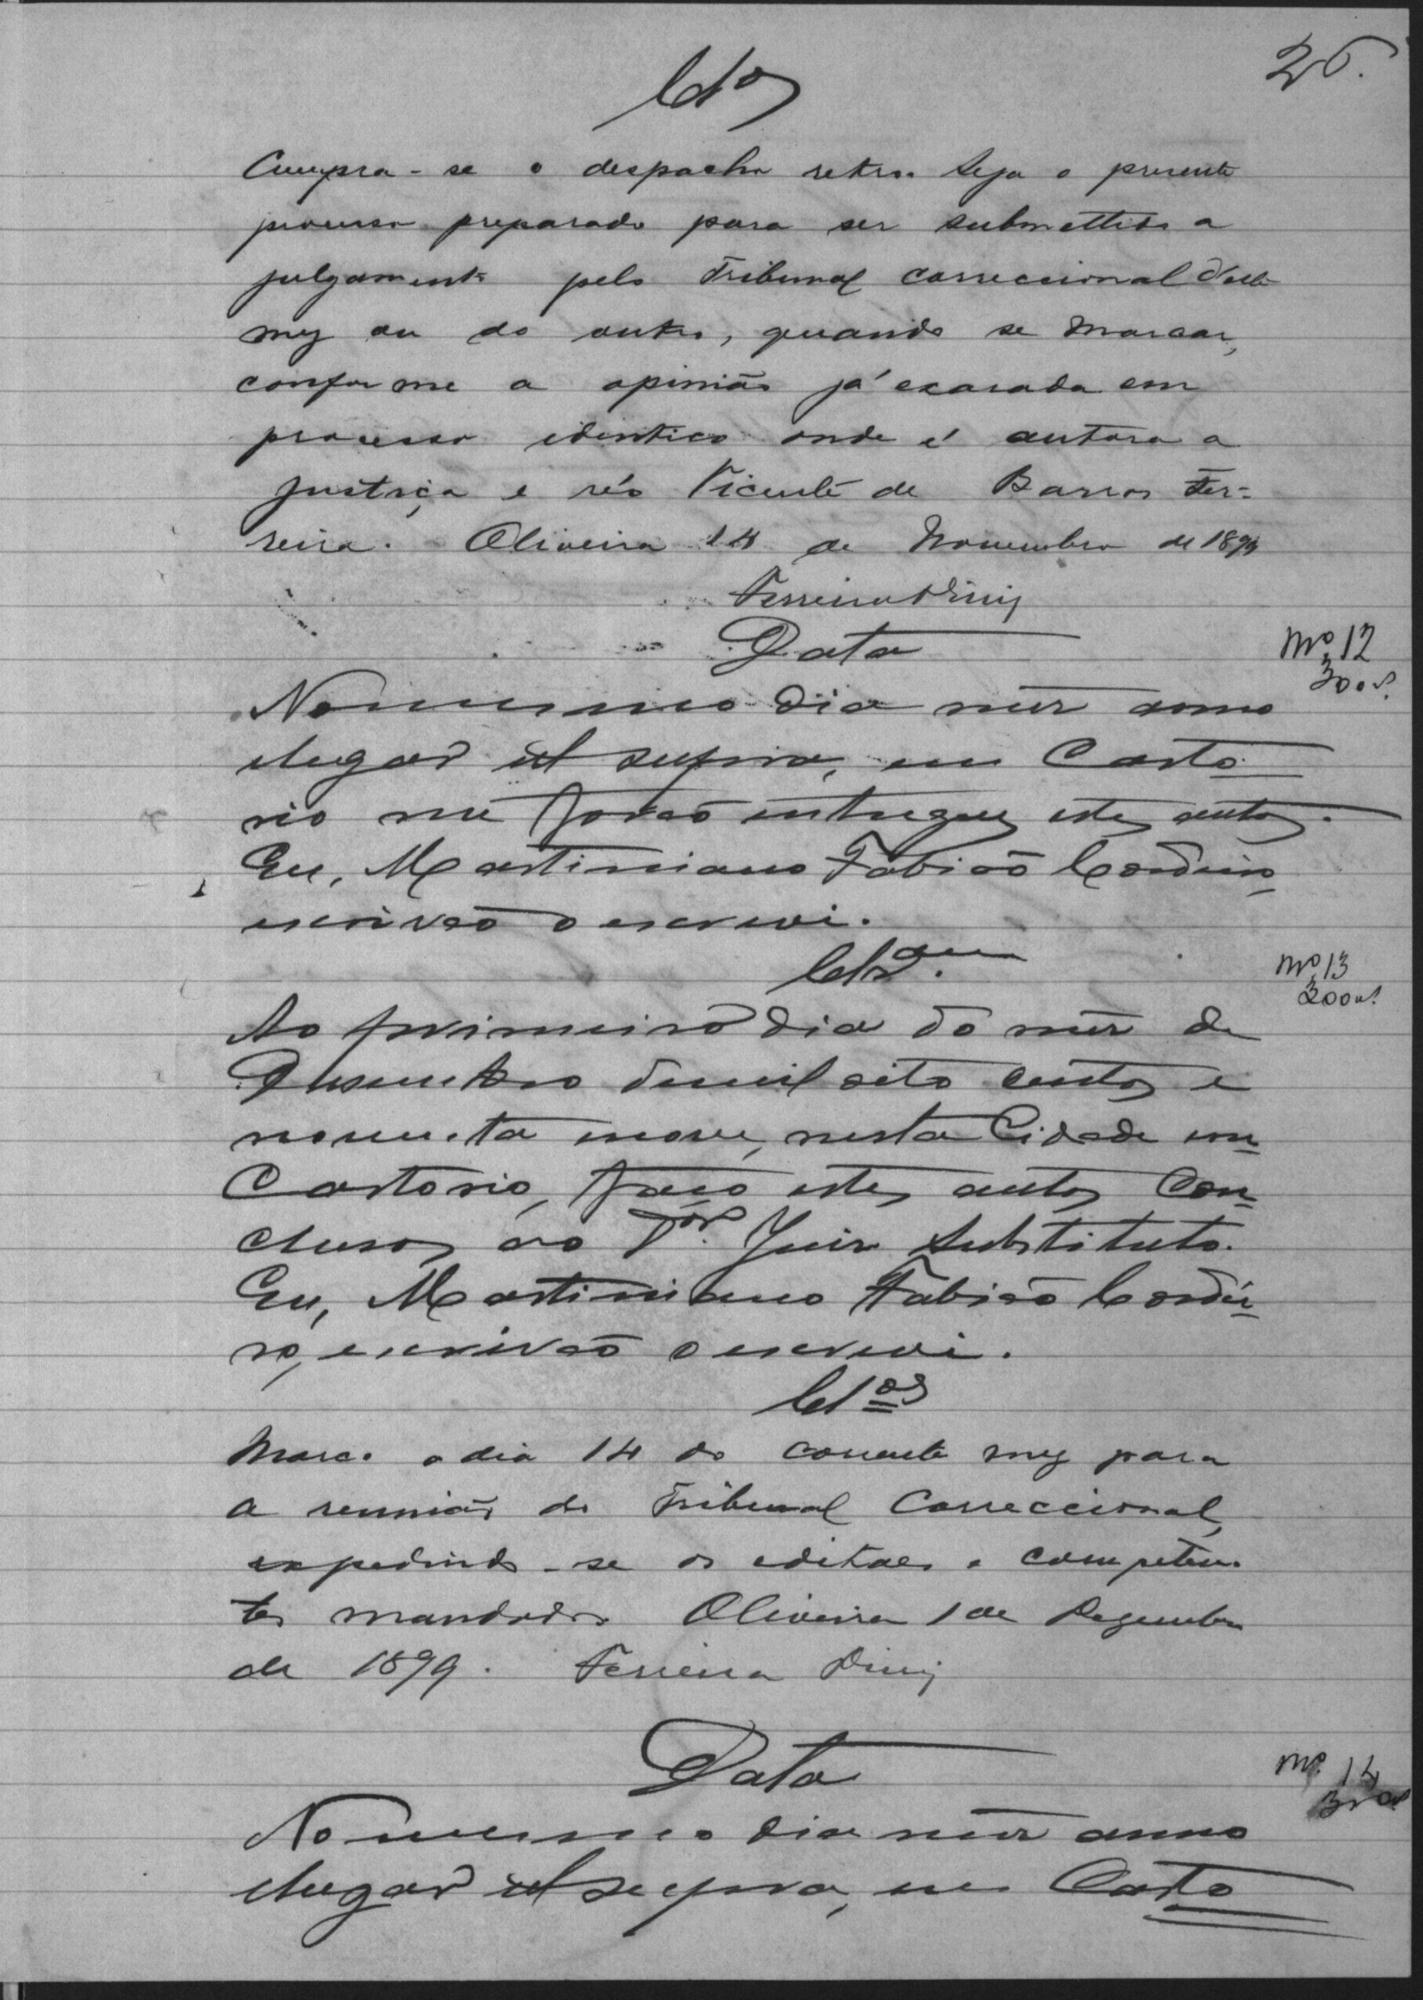 26.
Cl.os
Cumpra-se o despacho retro. Seja o presente
processo preparado para ser submettido a
julgamento pelo Tribunal Correccional d'este
mez ou do outro, quando se marcar,
conforme a opinião já exarada em
processo identico onde é autora a
Justiça e réo Vicente de Barros Fer-
reira. Oliveira 14 de Novembro de 1899
Ferreira Diniz
Data
No mesmo dia mez anno
e lugar ut supra, em Carto
rio me forão entregues estes autos.
Eu, Martiniano Fabião Cordeiro,
escrivão o escrevi.
Mo 12
300 rs.
Cls.am
Mo 13
200 rs.
Ao primeiro dia do mez de
Dezembro de mil oito centos e
noventa e nove, nesta Cidade em
Cartorio, faço estes autos Con-
clusos ao Dor. Juiz Substituto.
Eu, Martiniano Fabião Cordei-
ro, escrivão o escrevi.
Cl.os
Marco o dia 14 do corrente mez para
a reunião do Tribunal Correccional,
expedindo-se os editaes e competen-
tes mandados. Oliveira 1 de Dezembro
de 1899. Ferreira Diniz
Data
Mo. 14
No mesmo dia mez anno
e lugar ut supra, em Carto